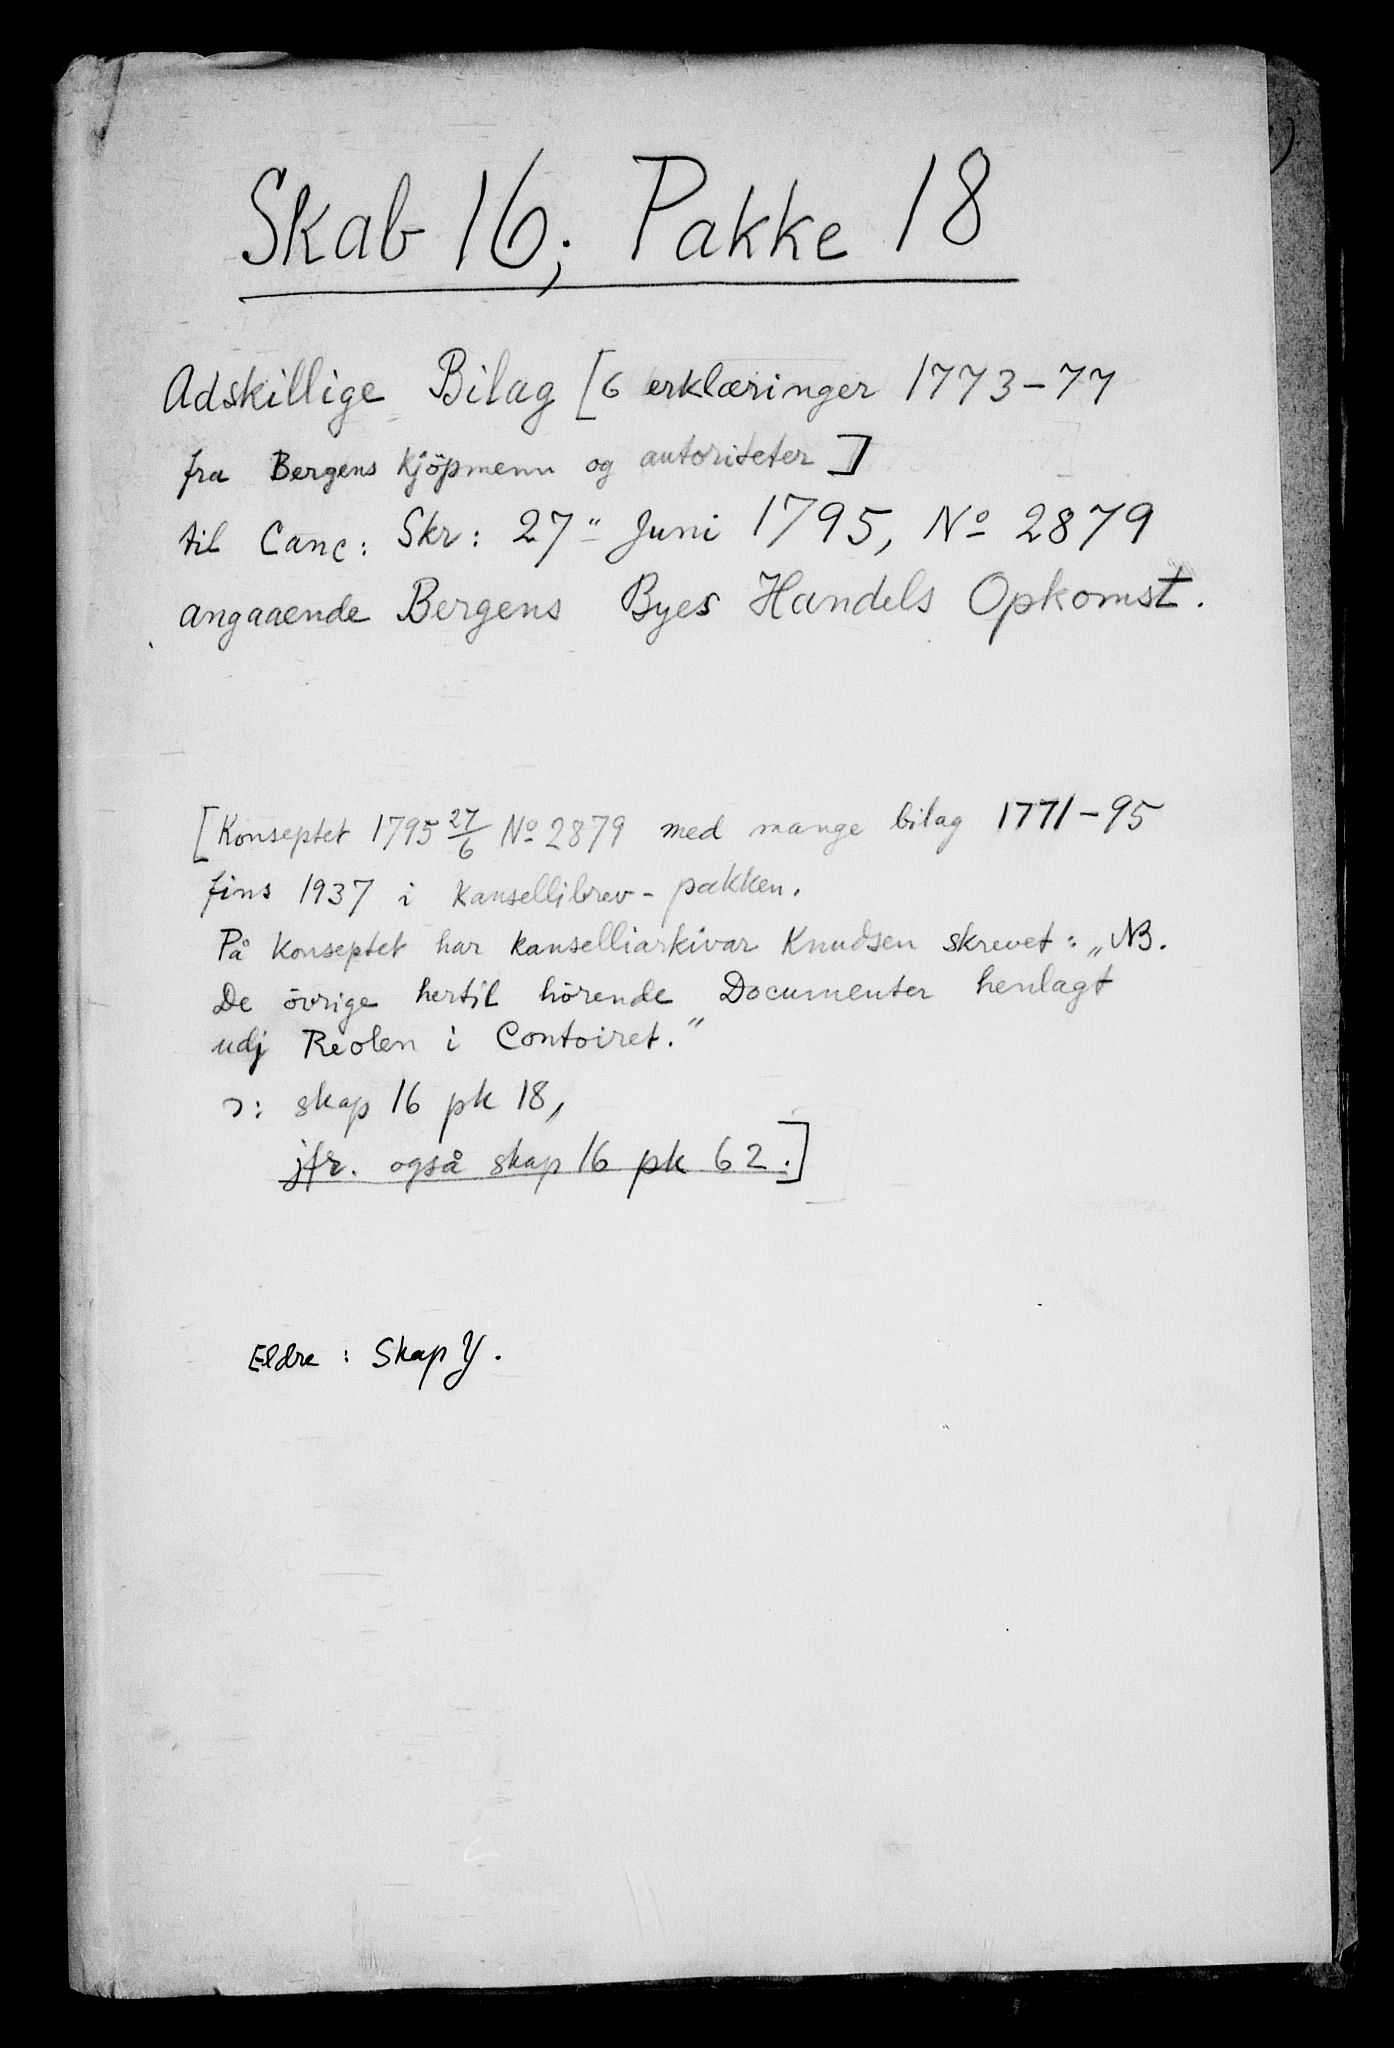 Skab 16; Pakke 18
Adskillige Bilag [6 erklæringer 1773-77
fra Bergens kjöpmenn og autoriteter]
til Canc: Skr: 27" Juni 1795, No 2879
angaaende Bergens Byes Handels Opkomst.
[Konseptet 1795 27/6 No 2879 med mange bilag 1771-95
fins 1937 i kansellibrev-pakken.
På konseptet har kanselliarkivar Knudsen skrevet: „NB.
De övrige hertil hörende Documenter henlagt
udj Reolen i Contoiret."
ɔ: skap 16 pk 18,
jfr. også skap 16 pk 62.]
Eldre: Skap Y.